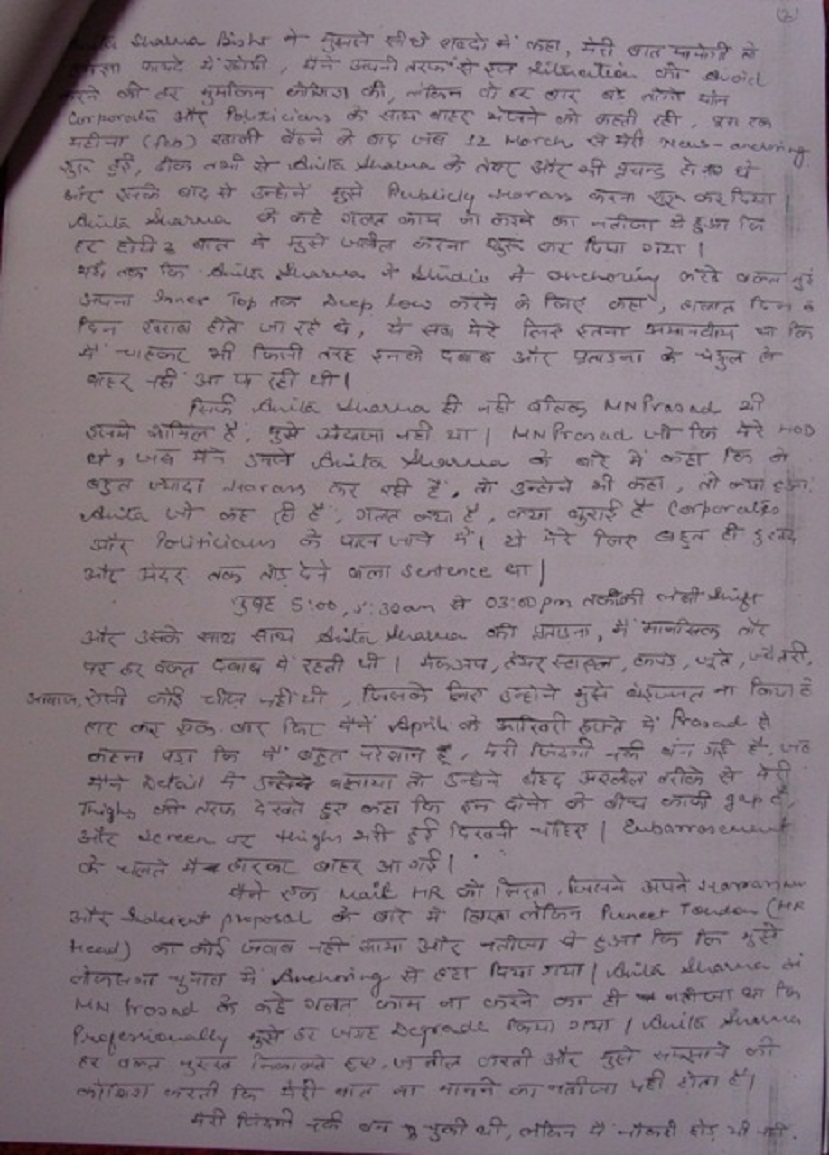 (2)
Anita Sharma Bisht ने मुझसे सीधे शब्दों में कहा, मेरी बात मानोगी तो
फायदे में रहोगी, मैंने अपनी तरफ से इस situation को avoid
करने की हर मुमकिन कोशिश की, लेकिन वो हर बार बड़े लोगों यानि
Corporate और Politicians के साथ बाहर भेजने को कहती रही, एक
महीना (Feb) खाली बैठने के बाद जब 12 March से मेरी News-anchoring
शुरू हुई, ठीक तभी से Anita Sharma के तेवर और भी प्रचन्ड हो गए थे
और इसके बाद से उन्होंने मुझे Publicly Harass करना शुरू कर दिया |
Anita Sharma के कहे गलत काम ना करने का नतीजा ये हुआ कि
हर छोटी 2 बात में मुझे जलील करना शुरू कर दिया गया |
यहाँ तक कि Anita Sharma ने Studio में anchoring करते वक्त मुझे
अपना Inner Top तक Deep Low करने के लिए कहा, हालात दिन ब
दिन खराब होते जा रहे थे, ये सब मेरे लिए इतना अपमानदीय था कि
मैं चाहकर भी किसी तरह इनके दबाव और प्रताड़ना के चंगुल से
बाहर नहीं आ पा रही थी |
सिर्फ Anita Sharma ही नहीं बल्कि MN Prasad भी
इसमें शामिल है, मुझे अंदाजा नहीं था | MN Prasad जो कि मेरे HOD
थे, जब मैंने उनसे Anita Sharma के बारे में कहा कि वे
बहुत ज्यादा Harass कर रही हैं, तो उन्होंने भी कहा, तो क्या हुआ
Anita जो कह रही है, गलत क्या है, क्या बुराई है Corporates
और Politicians के पास जाने में | ये मेरे लिए बहुत ही दुखद
और अंदर तक तोड़ देने वाला sentence था |
सुबह 5:00, 5:30am से 03:00 pm तक की लंबी shift
और उसके साथ साथ Anita Sharma की प्रताड़ना, मैं मानसिक तौर
पर हर वक्त दबाव में रहती थी | मेकअप, हेयर स्टाइल, कपड़े, जूते, ज्वैलरी,
आवाज, ऐसी कोई चीज नहीं थी, जिसके लिए उन्होंने मुझे बेइज्जत ना किया हो
हार कर एक बार फिर मैंने April के आखिरी हफ्ते में Prasad से
कहना पड़ा कि मैं बहुत परेशान हूँ, मेरी जिंदगी नर्क बन गई है, जब
मैंने Detail में उन्हें बताया तो उन्होंने बेहद अश्लील तरीके से मेरी
Thighs की तरफ देखते हुए कहा कि इन दोनों के बीच काफी gap है,
और Screen पर thighs भरी हुई दिखनी चाहिए | Embarrassment
के चलते मैं हारकर बाहर आ गई |
मैंने एक Mail HR को लिखा, जिसमें अपने Harassment
और Indecent proposal के बारे में लिखा लेकिन Puneet Tandon (HR
Head) का कोई जवाब नहीं आया और नतीजा ये हुआ कि मुझे
लोकसभा चुनाव में Anchoring से हटा दिया गया | Anita Sharma
MN Prasad के कहे गलत काम ना करने का ही नतीजा था कि
Professionally मुझे हर जगह Degrade किया गया | Anita Sharma
हर वक्त नुक्स निकालते हुए, जलील करती और मुझे समझाने की
कोशिश करती कि मेरी बात ना मानने का नतीजा यही होता है |
मेरी जिंदगी नर्क बन चुकी थी, लेकिन मैं नौकरी छोड़ भी नहीं